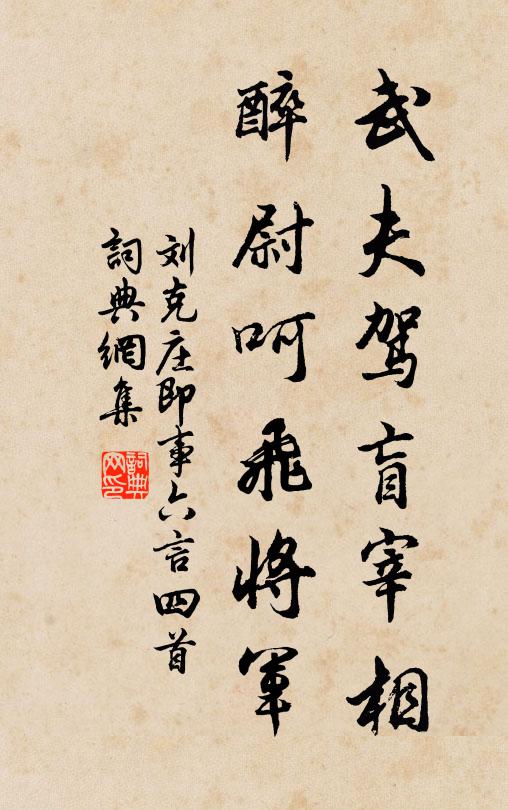 武夫驾盲宰相
醉尉呵飛將軍
刘克庄即事六言四首
詞典網集
詞典網印